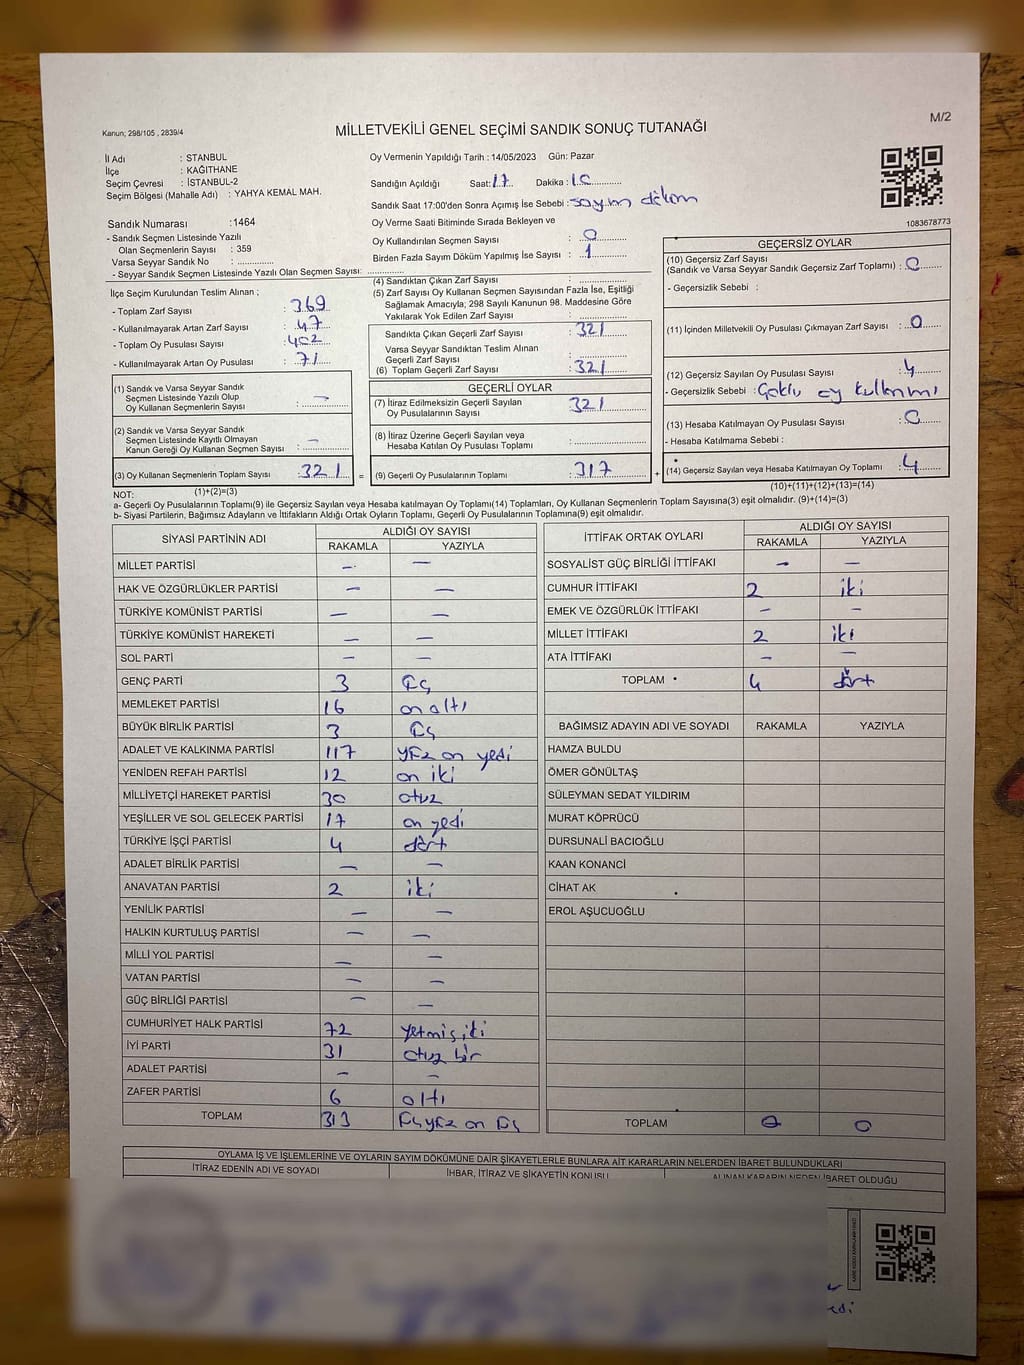 M/2
Kanun; 298/105 , 2839/4
MİLLETVEKİLİ GENEL SEÇİMİ SANDIK SONUÇ TUTANAĞI
İl Adı : STANBUL
İlçe : KAĞITHANE
Seçim Çevresi : İSTANBUL-2
Seçim Bölgesi (Mahalle Adı) : YAHYA KEMAL MAH.
Oy Vermenin Yapıldığı Tarih : 14/05/2023 Gün: Pazar
Sandığın Açıldığı Saat: 17 Dakika : 10
Sandık Saat 17:00'den Sonra Açımış İse Sebebi : sayım döküm
1083678773
Sandık Numarası :1464
- Sandık Seçmen Listesinde Yazılı
Olan Seçmenlerin Sayısı : 359
Varsa Seyyar Sandık No :
- Seyyar Sandık Seçmen Listesinde Yazılı Olan Seçmen Sayısı:
Oy Verme Saati Bitiminde Sırada Bekleyen ve
Oy Kullandırılan Seçmen Sayısı : 0
Birden Fazla Sayım Döküm Yapılmış İse Sayısı : 1
İlçe Seçim Kurulundan Teslim Alınan ;
- Toplam Zarf Sayısı : 369
- Kullanılmayarak Artan Zarf Sayısı : 47
- Toplam Oy Pusulası Sayısı : 402
- Kullanılmayarak Artan Oy Pusulası : 71
(1) Sandık ve Varsa Seyyar Sandık
Seçmen Listesinde Yazılı Olup
Oy Kullanan Seçmenlerin Sayısı : —
(2) Sandık ve Varsa Seyyar Sandık
Seçmen Listesinde Kayıtlı Olmayan
Kanun Gereği Oy Kullanan Seçmen Sayısı : —
(3) Oy Kullanan Seçmenlerin Toplam Sayısı : 321 =
(1)+(2)=(3)
(4) Sandıktan Çıkan Zarf Sayısı :
(5) Zarf Sayısı Oy Kullanan Seçmen Sayısından Fazla İse, Eşitliği
Sağlamak Amacıyla; 298 Sayılı Kanunun 98. Maddesine Göre
Yakılarak Yok Edilen Zarf Sayısı :
Sandıkta Çıkan Geçerli Zarf Sayısı : 321
Varsa Seyyar Sandıktan Teslim Alınan
Geçerli Zarf Sayısı :
(6) Toplam Geçerli Zarf Sayısı : 321
GEÇERLİ OYLAR
(7) İtiraz Edilmeksizin Geçerli Sayılan
Oy Pusulalarının Sayısı : 321
(8) İtiraz Üzerine Geçerli Sayılan veya
Hesaba Katılan Oy Pusulası Toplamı :
(9) Geçerli Oy Pusulalarının Toplamı : 317 +
GEÇERSİZ OYLAR
(10) Geçersiz Zarf Sayısı
(Sandık ve Varsa Seyyar Sandık Geçersiz Zarf Toplamı) : 0
- Geçersizlik Sebebi :
(11) İçinden Milletvekili Oy Pusulası Çıkmayan Zarf Sayısı : 0
(12) Geçersiz Sayılan Oy Pusulası Sayısı : 4
- Geçersizlik Sebebi : Çoklu oy kullanımı
(13) Hesaba Katılmayan Oy Pusulası Sayısı : 0
- Hesaba Katılmama Sebebi :
(14) Geçersiz Sayılan veya Hesaba Katılmayan Oy Toplamı : 4
(10)+(11)+(12)+(13)=(14)
NOT:
a- Geçerli Oy Pusulalarının Toplamı(9) ile Geçersiz Sayılan veya Hesaba katılmayan Oy Toplamı(14) Toplamları, Oy Kullanan Seçmenlerin Toplam Sayısına(3) eşit olmalıdır. (9)+(14)=(3)
b- Siyasi Partilerin, Bağımsız Adayların ve İttifakların Aldığı Ortak Oyların Toplamı, Geçerli Oy Pusulalarının Toplamına(9) eşit olmalıdır.
SİYASİ PARTİNİN ADI ALDIĞI OY SAYISI
RAKAMLA YAZIYLA
MİLLET PARTİSİ — —
HAK VE ÖZGÜRLÜKLER PARTİSİ — —
TÜRKİYE KOMÜNİST PARTİSİ — —
TÜRKİYE KOMÜNİST HAREKETİ — —
SOL PARTİ — —
GENÇ PARTİ 3 üç
MEMLEKET PARTİSİ 16 on altı
BÜYÜK BİRLİK PARTİSİ 3 üç
ADALET VE KALKINMA PARTİSİ 117 yüz on yedi
YENİDEN REFAH PARTİSİ 12 on iki
MİLLİYETÇİ HAREKET PARTİSİ 30 otuz
YEŞİLLER VE SOL GELECEK PARTİSİ 17 on yedi
TÜRKİYE İŞÇİ PARTİSİ 4 dört
ADALET BİRLİK PARTİSİ — —
ANAVATAN PARTİSİ 2 iki
YENİLİK PARTİSİ — —
HALKIN KURTULUŞ PARTİSİ — —
MİLLİ YOL PARTİSİ — —
VATAN PARTİSİ — —
GÜÇ BİRLİĞİ PARTİSİ — —
CUMHURİYET HALK PARTİSİ 72 yetmiş iki
İYİ PARTİ 31 otuz bir
ADALET PARTİSİ — —
ZAFER PARTİSİ 6 altı
TOPLAM 313 üçyüz on üç
İTTİFAK ORTAK OYLARI ALDIĞI OY SAYISI
RAKAMLA YAZIYLA
SOSYALİST GÜÇ BİRLİĞİ İTTİFAKI — —
CUMHUR İTTİFAKI 2 iki
EMEK VE ÖZGÜRLÜK İTTİFAKI — —
MİLLET İTTİFAKI 2 iki
ATA İTTİFAKI — —
TOPLAM 4 dört
BAĞIMSIZ ADAYIN ADI VE SOYADI RAKAMLA YAZIYLA
HAMZA BULDU
ÖMER GÖNÜLTAŞ
SÜLEYMAN SEDAT YILDIRIM
MURAT KÖPRÜCÜ
DURSUNALİ BACIOĞLU
KAAN KONANCİ
CİHAT AK
EROL AŞUCUOĞLU
TOPLAM 0 0
OYLAMA İŞ VE İŞLEMLERİNE VE OYLARIN SAYIM DÖKÜMÜNE DAİR ŞİKAYETLERLE BUNLARA AİT KARARLARIN NELERDEN İBARET BULUNDUKLARI
İTİRAZ EDENİN ADI VE SOYADI İHBAR, İTİRAZ VE ŞİKAYETİN KONUSU ALINAN KARARIN NEDEN İBARET OLDUĞU